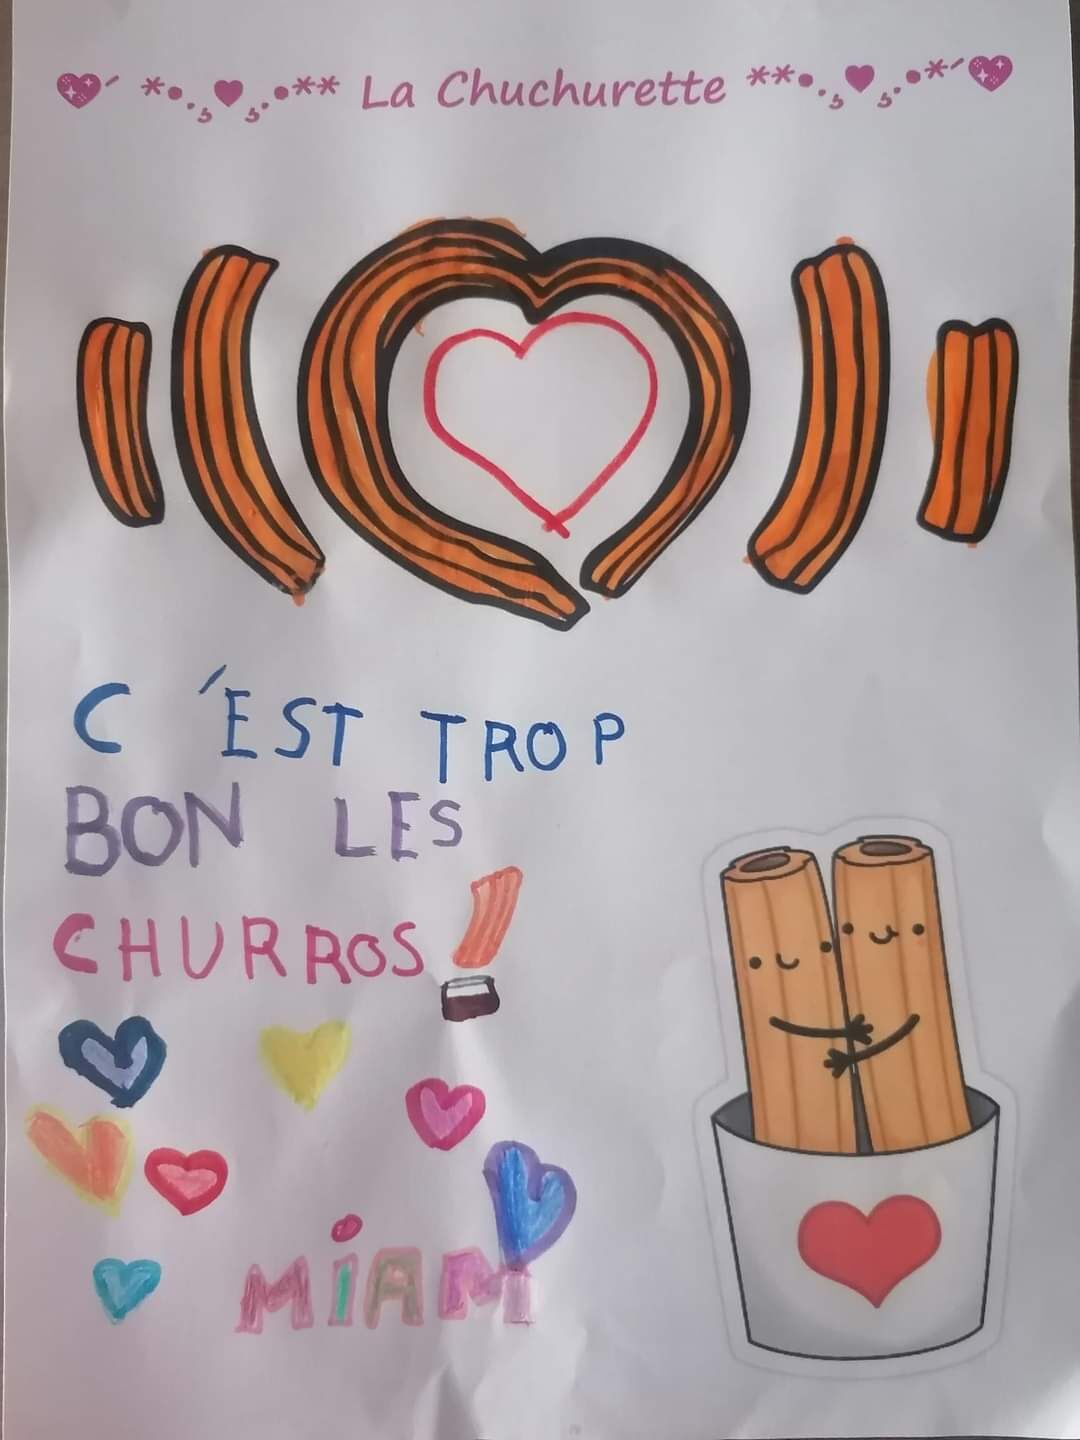 💖´ *•.¸♥¸.•** La Chuchurette **•.¸♥¸.•*´💖
C'EST TROP
BON LES
CHURROS!
MiAM